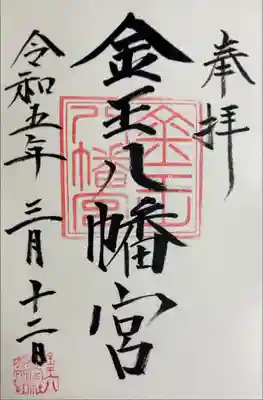 奉拝
金王八幡宮
令和五年 三月 十二日